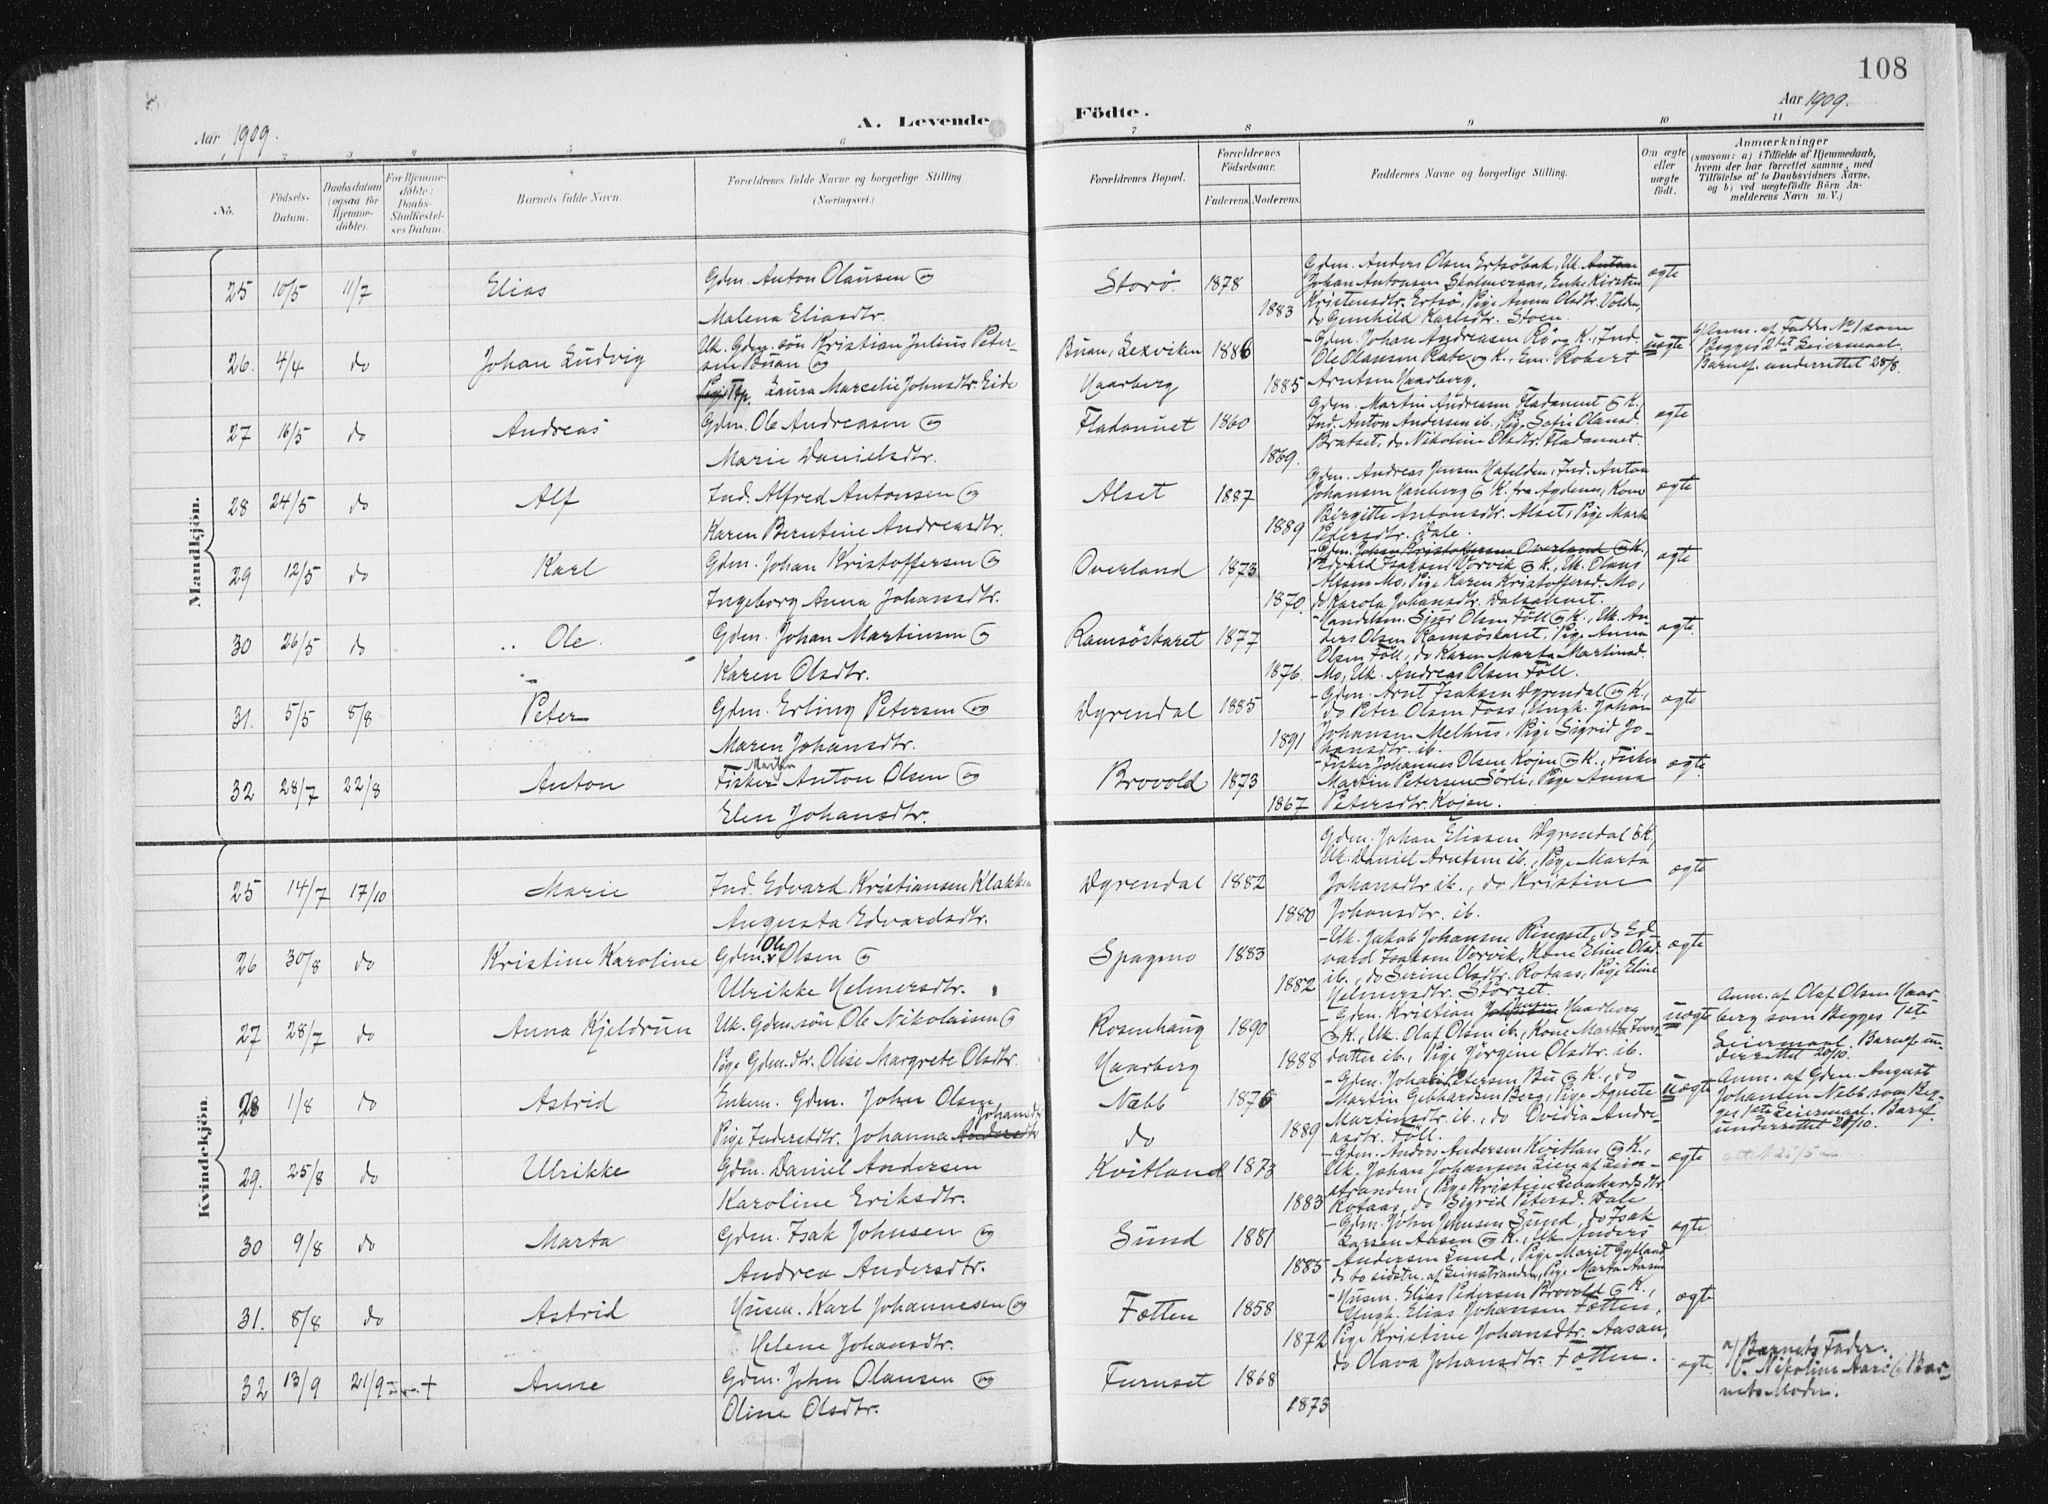 108
Aar 1909.
A. Levende Födte.
Aar 1909.
1 2 3 4 5 6 7 8 9 10 11
No.
Födsels-Datum.
Daabsdatum (ogsaa for Hjemme-döbte).
For Hjemme-döbte: Daabs-Stadfæstel-ses Datum.
Barnets fulde Navn.
Forældrenes fulde Navne og borgerlige Stilling
(Næringsvei.)
Forældrenes Bopæl.
Forældrenes Födselsaar.
Faderens. Moderens.
Faddernes Navne og borgerlige Stilling.
Om ægte eller uægte födt.
Anmærkninger
(saasom: a) i Tilfælde af Hjemmedaab,
hvem der har forrettet samme, med
Tilföielse af to Daabsvidners Navne.
og b) ved uægtefödte Börn An-
melderens Navn m. V.)
Mandkjön.
25 10/5 11/7 Elias Gdm. Anton Olausen og
Malena Eliasdtr.
Storö 1878 1883
Gdm. Anders Olsen Ertsöbak, Uk. Anton
Johan Antonsen Skalmeraas, Enke Kirsten
Kristensdtr. Ertsö, Pige Anna Olsdtr. Volden,
do Gunhild Karlsdtr. Stoen.
ægte
26. 4/4 do Johan Ludvig Uk. Gdm. sön Kristian Julius Peter-
sen Buan og
Tp. Laura Marcelie Johnsdtr. Eide
Buan, Lexviken 1886
Haarberg 1885
Gdm. Johan Andreasen Rö og K., Ind.
Ole Olausen Rabe og K., Em. Robert
Arntsen Haarberg.
uægte
b) Anm. af Fadder No 1 som
Begges 2det Leiermaal.
Barnef. underrettet 28/8.
27 16/5 do Andreas Gdm. Ole Andreasen og
Marie Danielsdtr.
Fladaunet 1860 1869.
Gdm. Martin Andreasen Fladaunet og K.,
Ind. Anton Andersen ib., Pige Sofie Olausd.
Bratset, do Nikoline Olsdtr. Fladaunet.
ægte
28 24/5 do Alf Ind. Alfred Antonsen og
Karen Berntine Andreasdtr.
Alset 1887 1889
Gdm. Andreas Jensen Hafelden, Ind. Anton
Johansen Haarberg og K. fra Agdenes, Kone
Birgitte Antonsdtr. Alset, Pige Marta
Pedersdtr. Dale.
ægte
29 12/5 do Karl Gdm. Johan Kristoffersen og
Ingeborg Anna Johansdtr.
Overland 1873 1870.
Gdm. Johan Kristoffersen Overland og K.,
Edvard Isaksen Vorvik og K., Uk. Olaus
Olsen Mo, Pige Karen Kristoffersd. Mo,
do Karola Johansdtr. Dalsaunet.
ægte
30 26/5 do Ole. Gdm. Johan Martinsen og
Karen Olsdtr.
Ramsöskaret 1877 1876.
Handelsm. Sjur Olsen Föll og K., Uk. An-
ders Olsen Ramsöskaret, Pige Anna
Olsen Föll, do Karen Marta Martinsd.
Mo, Uk. Andreas Olsen Föll.
ægte
31. 5/5 8/8 Peter Gdm. Erling Petersen og
Maren Johansdtr.
Dyrendal 1885 1891
Gdm. Arnt Isaksen Dyrendal og K.,
do Peter Olsen Foss, Ungk. Johan
Johansen Melhus, Pige Sigrid Jo-
hansdtr. ib.
ægte
32 28/7 22/8 Anton Fisker Martin Anton Olsen og
Elen Johansdtr.
Brovold 1873 1867
Fisker Johannes Olsen Kojen og K., Fisker
Martin Petersen Sörli, Pige Anna
Petersdtr. Kojen.
ægte
Kvindekjön.
25 14/7 17/10 Marie Ind. Edvard Kristiansen Klakken
Augusta Edvardsdtr.
Dyrendal 1882 1880
Gdm. Johan Eliasen Dyrendal og K,
Uk. Daniel Arntsen ib., Pige Marta
Johansdtr. ib., do Kristine
Johansdtr. ib.
ægte
26 30/8 do Kristine Karoline Gdm. Ole Olsen og
Ulrikke Helmersdtr.
Spagmo 1883 1882
Uk. Jakob Johansen Ringset, do Ed-
vard Isaksen Vorvik, Kone Eline Olsd.
ib., do Serine Olsdtr. Rotaas, Pige Eline
Helmersdtr. Störset.
ægte
27 28/7 do Anna Kjeldrun Uk. Gdm. sön Ole Nikolaisen og
Pige Gdm. dtr. Olise Margrete Olsdtr.
Rosenhaug 1890
Haarberg 1888
Gdm. Kristian Jensen Haarberg
og K., Uk. Olaf Olsen ib., Kone Marta Ivers-
datter ib., Pige Jörgine Olsdtr. ib.
uægte
Anm. af Olaf Olsen Haar-
berg som Begges 1ste
Leiermaal. Barnef. un-
derrettet 20/10.
28 1/8 do Astrid Enkem. Gdm. John Olsen
Pige Inderstdtr. Johanna Andersdtr Johansdtr
Nebb 1876
do 1889
Gdm. Johan Petersen Bu og K., do
Martin Gebhardsen Berg, Pige Agnete
Martinsdtr. ib., do Ovidia Andre-
asdtr. Föll.
uægte
Anm. af Gdm. August
Johansen Nebb som Beg-
ges 1ste Leiermaal. Barnef.
underrettet 20/10.
29. 25/8 do Ulrikke Gdm. Daniel Andersen
Karoline Eriksdtr.
Kvitland 1873 1883
Gdm. Anders Andersen Kvitlan og K.,
Uk. Johan Johansen Lien af Lein-
stranden, Pige Kristein Leonhardsdtr.
Rotaas, do Sigrid Petersd. Dale
ægte
30 9/8 do Marta Gdm. Isak Johnsen og
Andrea Andersdtr.
Sund 1881 1885
Gdm. John Johnsen Sund, do Isak
Larsen Aasen og K., Uk. Anders
Andersen Sund, Pige Marit Gylland,
do to sidste. af Leinstranden, Pige Marta Aasen
ægte
31. 8/8 do Astrid Husm. Karl Johannesen og
Helene Johansdtr.
Fætten 1858 1872
Husm. Elias Pedersen Brovold og K.,
Ungk. Elias Johansen Fætten,
Pige Kristine Johansdtr. Aasan,
do Olava Johansdtr. Fætten.
ægte
32 13/9 21/9 + Anne Gdm. John Olausen og
Oline Olsdtr.
Furuset 1868 1873
ægte.
a) Barnets Fader.
Bar-
nets Moder.